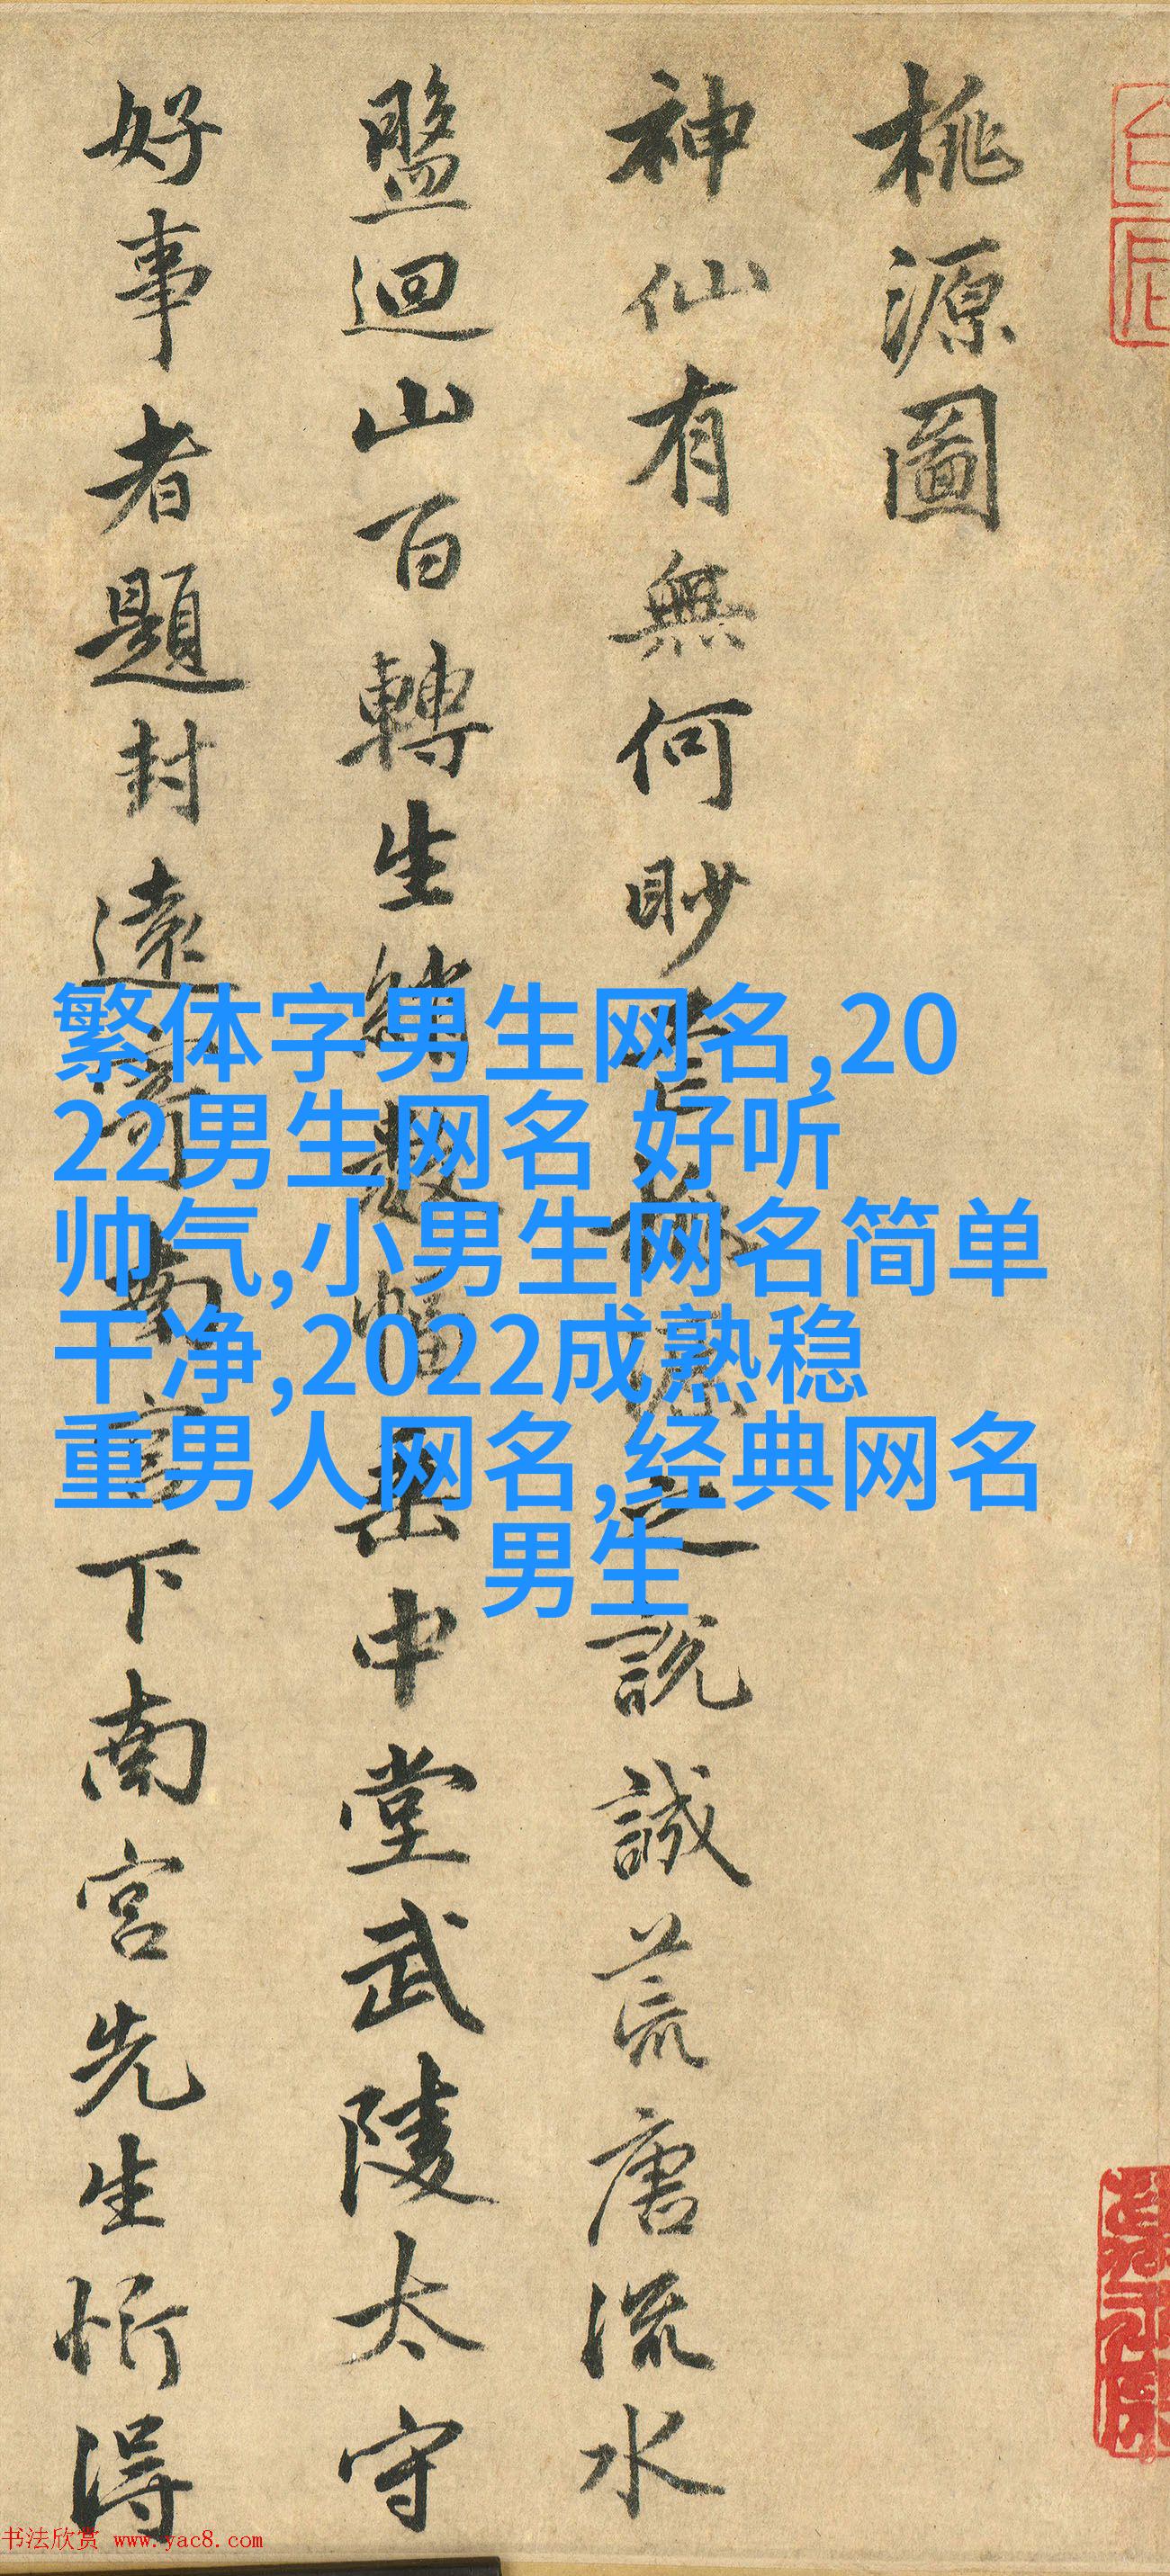 桃源圖
神仙有無何眇芒桃源之說誠荒唐流水
盤迴山百轉生綃數幅垂中堂武陵太守
好事者題封遠寄南宮下南宮先生忻得
繁体字男生网名,20
22男生网名 好听
帅气,小男生网名简单
干净,2022成熟稳
重男人网名,经典网名
男生
书法欣赏 www.yac8.com